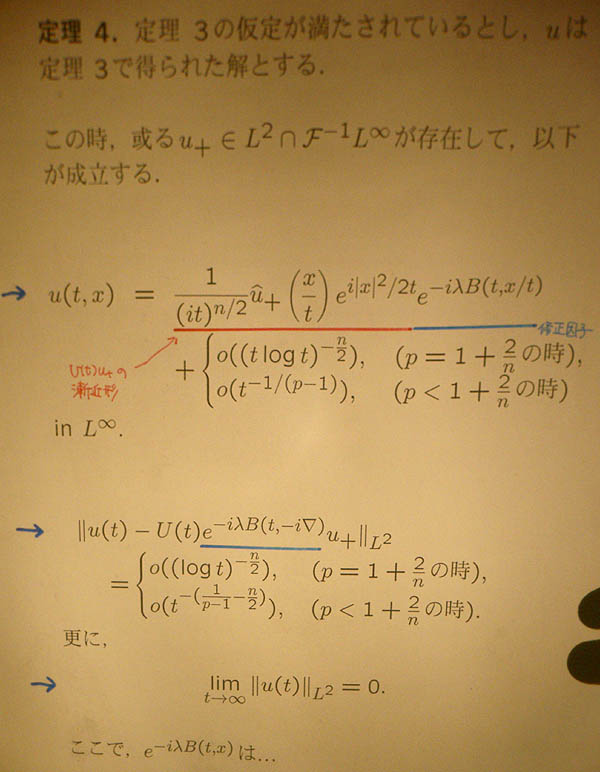 定理 4. 定理 3の仮定が満たされているとし, uは
定理 3で得られた解とする.
この時, 或るu₊ ∈ L² ∩ F⁻¹L^∞が存在して, 以下
が成立する.
→ u(t, x) = \frac{1}{(it)^{n/2}} \hat{u}_+ (\frac{x}{t}) e^{i|x|^2/2t} e^{-iλB(t,x/t)}
修正因子
U(t)u₊の
漸近形
+ { o((t log t)^{-\frac{n}{2}}), (p = 1 + \frac{2}{n}の時),
o(t^{-1/(p-1)}), (p < 1 + \frac{2}{n}の時)
in L^∞.
→ ‖u(t) − U(t)e^{-iλB(t,-i∇)}u₊‖_{L²}
= { o((log t)^{-\frac{n}{2}}), (p = 1 + \frac{2}{n}の時),
o(t^{-(\frac{1}{p-1}-\frac{n}{2})}), (p < 1 + \frac{2}{n}の時).
更に,
→ \lim_{t→∞} ‖u(t)‖_{L²} = 0.
ここで, e^{-iλB(t,x)}は...